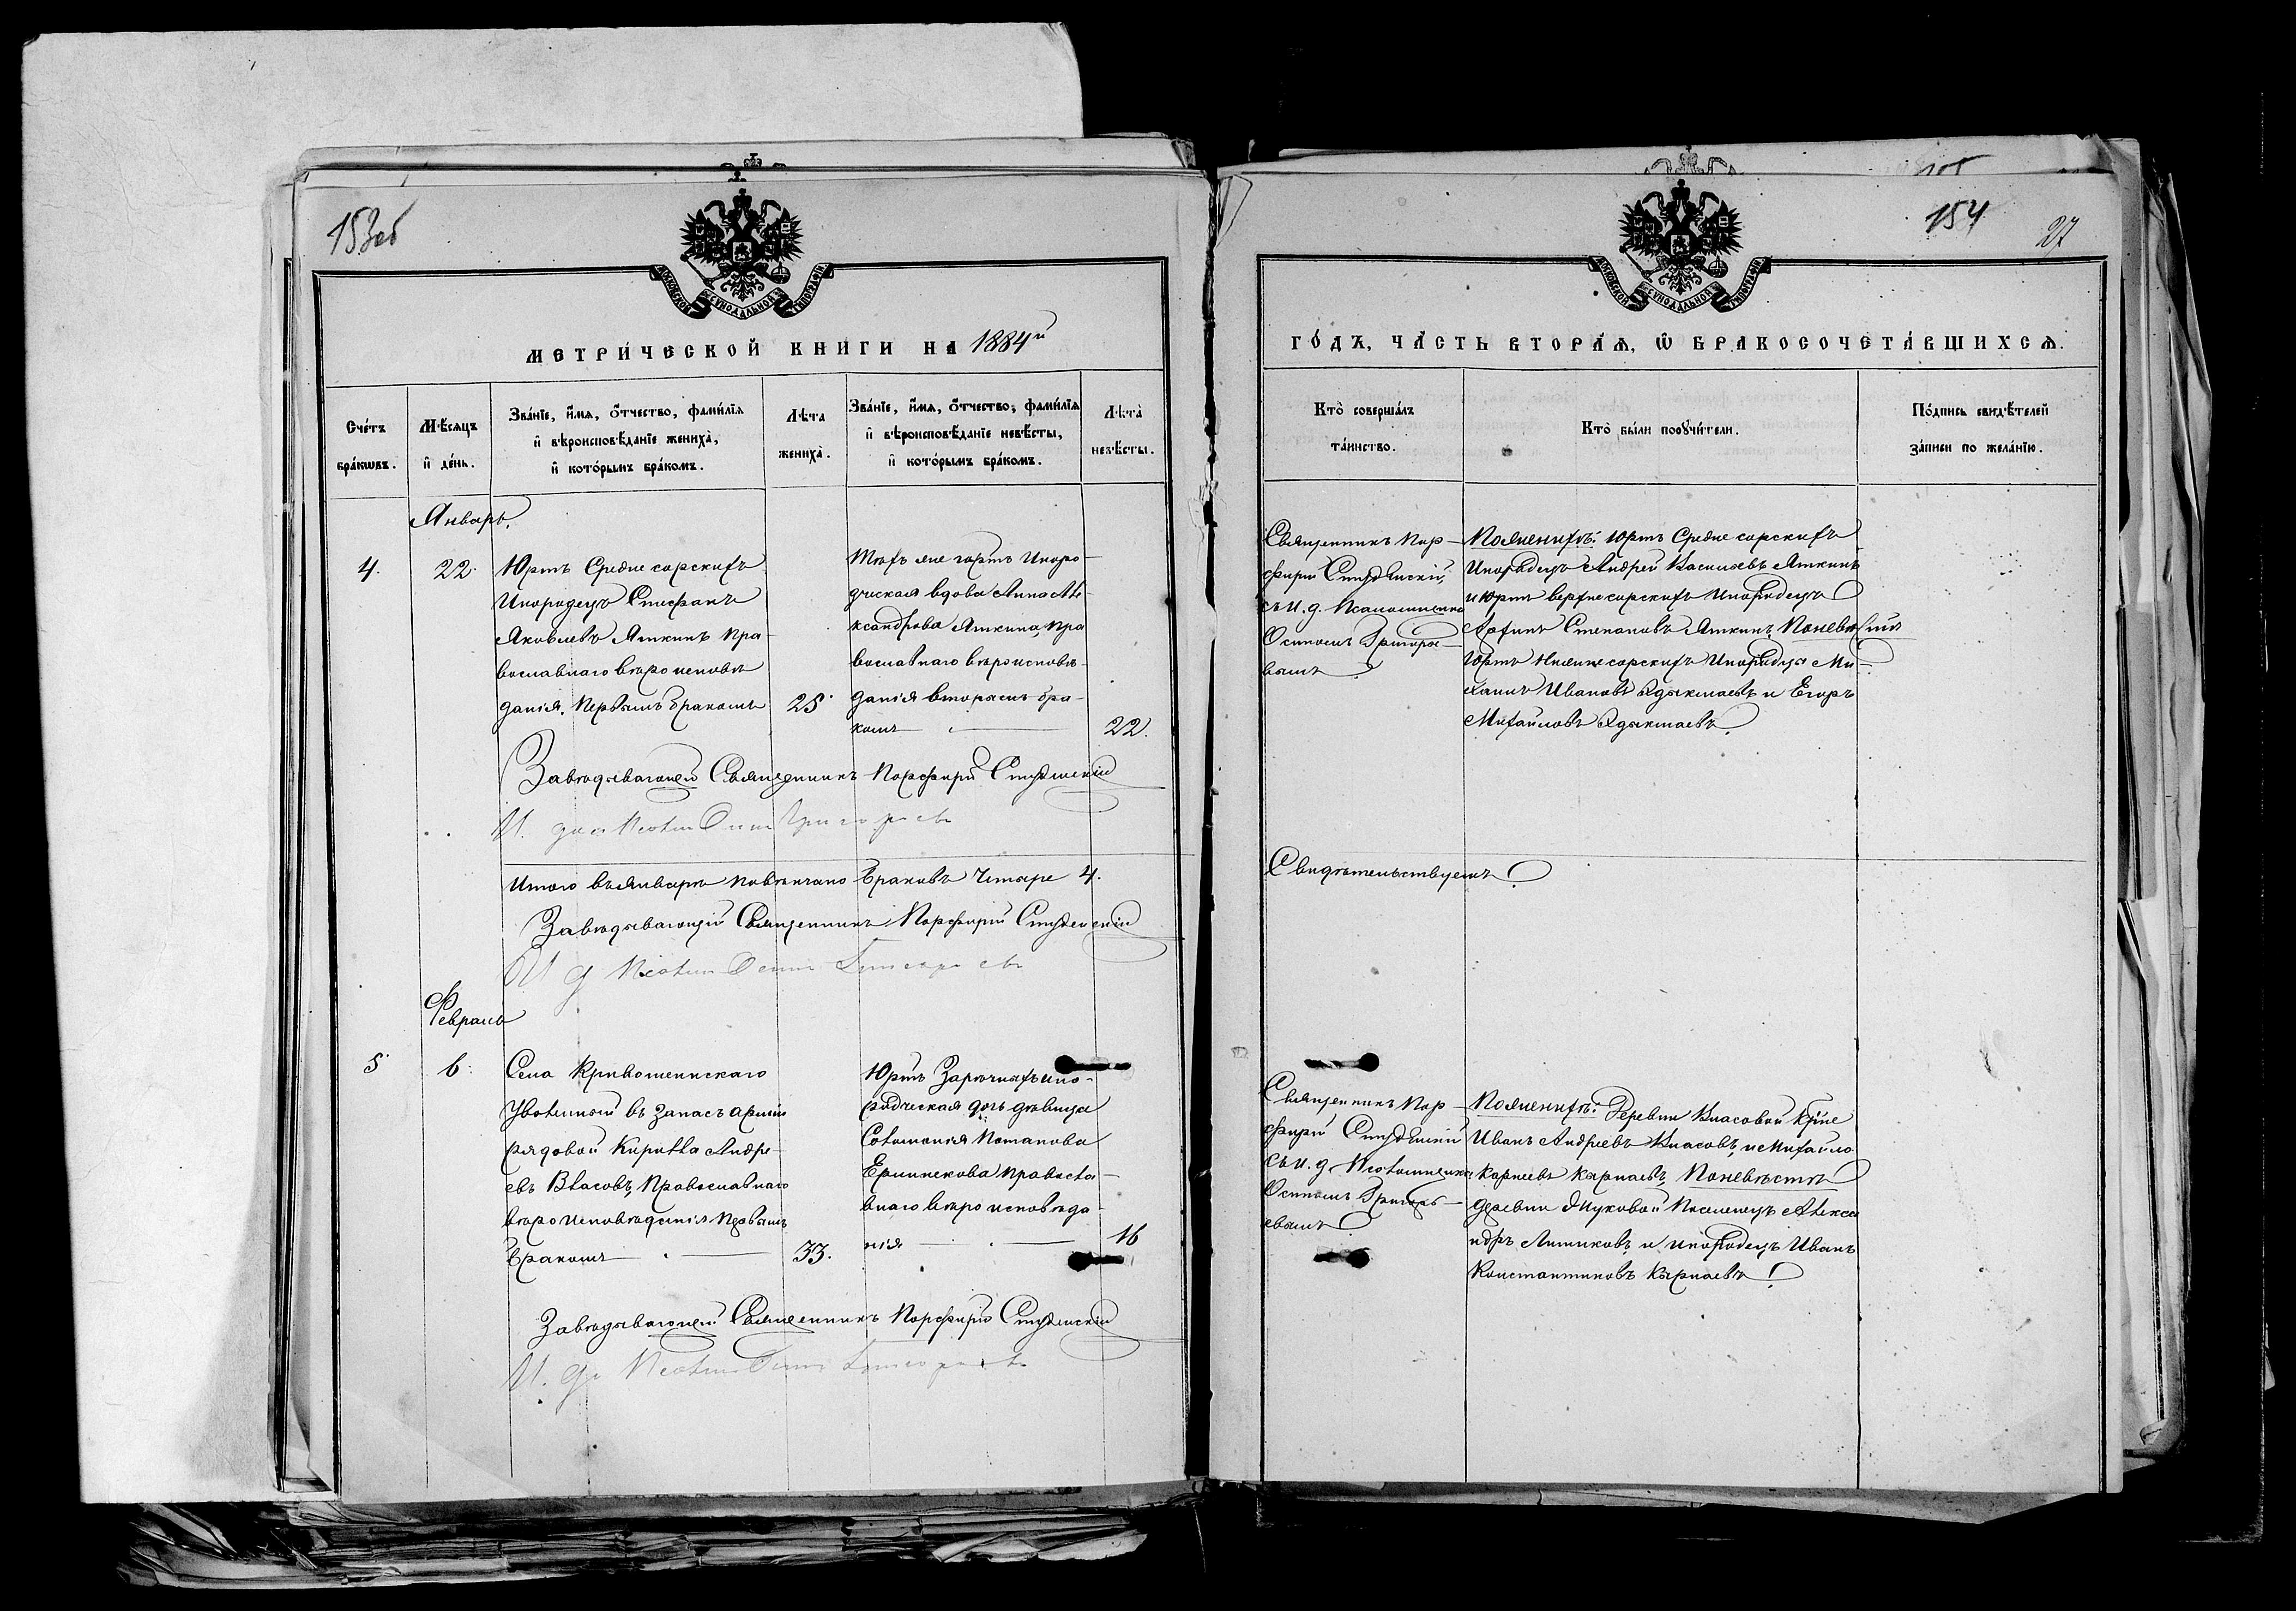 153об
МОСКОВСКОЙ СУНОДАЛЬНОЙ ТИПОГРАФІИ
МЕТРИ́ЧЕСКОЙ КНИГИ НА 1884й
Сче́тъ бра́кωвъ.
Мѣ́сяцъ и҆ де́нь.
Зва́нїе, и҆́мя, о҆́тчество, фами́лїя и҆ вѣроисповѣ́данїе жениха̀, и҆ кото́рымъ бра́комъ.
Лѣ́та жениха̀.
Зва́нїе, и҆́мя, о҆́тчество, фами́лїя и҆ вѣроисповѣ́данїе невѣ́сты, и҆ кото́рымъ бра́комъ.
Лѣта̀ невѣ́сты.
Январь.
4.
22.
Юртъ Среднесорскихъ
Инородецъ Стефанъ
Яковлевъ Аткинъ пра-
вославнаго вѣроисповѣ
данія. Первымъ бракомъ
25
Тѣхъ же юртъ Иноро-
дческая вдова Анна Але-
ксандрова Аткина, пра
вославнаго вѣроисповѣ-
данія вторымъ бра-
комъ
22.
Завѣдывающій Священникъ Порфирій Студенскій
И. Григорьевъ
Итого въ Январѣ повѣнчано браковъ Четыре 4.
Завѣдывающій Священникъ Порфирій Студенскій
И д
Февраль
5
6.
Села Кривошеинскаго
Уволенный въ запасъ арміи
рядовой Кирилла Андре-
евъ Власовъ, Православнаго
вѣроисповѣданія Первымъ
бракомъ
33.
Юртъ Зарѣчныхъ ино-
родческая дочь дѣвица
Соломонія Потапова
Ермиnekова Правосла-
внаго вѣроисповѣда-
нія
16
Завѣдывающій Священникъ Порфирій Студенскій
И. д.
154
27
МОСКОВСКОЙ СУНОДАЛЬНОЙ ТИПОГРАФІИ
ГО́ДЪ, ЧА́СТЬ ВТОРА́Я, Ѡ БРАКОСОЧЕТА́ВШИХСЯ.
Кто̀ соверша́лъ та́инство.
Кто̀ бы́ли порꙋчи́тели.
По́дпись свидѣ́телей за́писи по жела́нїю.
Священникъ Пор-
фирій Студенскій,
съ И. д. Псаломщика
Осипомъ Григорье-
вымъ
По женихѣ: юртъ Среднесорскихъ
Инородецъ Андрей Васильевъ Аткинъ
и юртъ верхнесорскихъ Инородецъ
Степановъ Аткинъ, По невѣстѣ
Юртъ Нижнесорскихъ Инородцы Ми-
хаилъ Ивановъ и Егоръ
Михайловъ
Свидѣтельствуемъ
Священникъ Пор-
фирій Студенскій
съ И. д. Псаломщика
Осипомъ Григорь-
евымъ
По женихѣ: Деревни Власовой Кр-не
Иванъ Андреевъ Власовъ, и Михайло
Карнеевъ Карпаевъ, По невѣстѣ
деревни Жуковой Поселенецъ Алекса
ндръ и инородецъ Иванъ
Константиновъ Карпаевъ